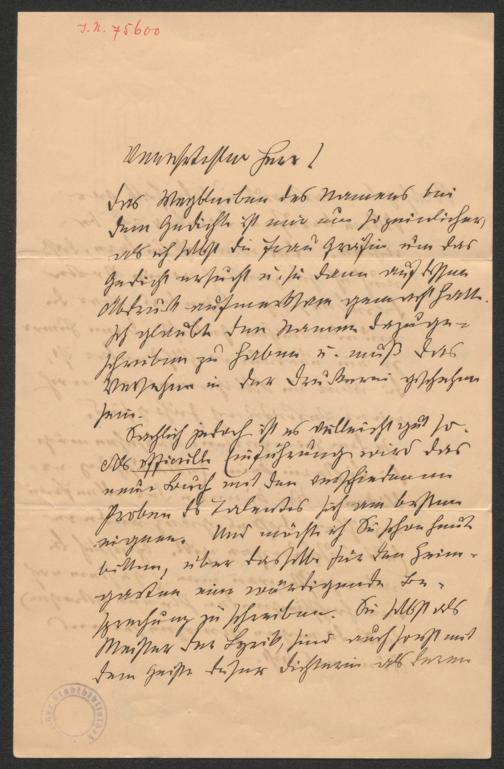 J.N. 75600
Verehrtester Herr!
Das Wegbleiben des Namens bei
dem Gedicht ist mir um so peinlicher,
als ich selbst die Frau Gräfin um das
Gedicht ersucht u. sie dann auf dessen
Abdruck aufmerksam gemacht hatte.
Ich glaubte den Namen dazuge-
schrieben zu haben u. muß das
Versehen in der Druckerei geschehen
sein.
Sachlich jedoch ist es vielleicht gut so.
Als officielle Einführung wird das
neue Buch mit den verschiedenen
Proben des Talentes sich am besten
eignen. Und möchte ich Sie schon heute
bitten, über dasselbe für den Heim-
garten eine würdigende Be-
sprechung zu schreiben. Sie selbst als
Meister der Lyrik, sind auch sonst mit
dem Geiste dieser Dichterin als deren